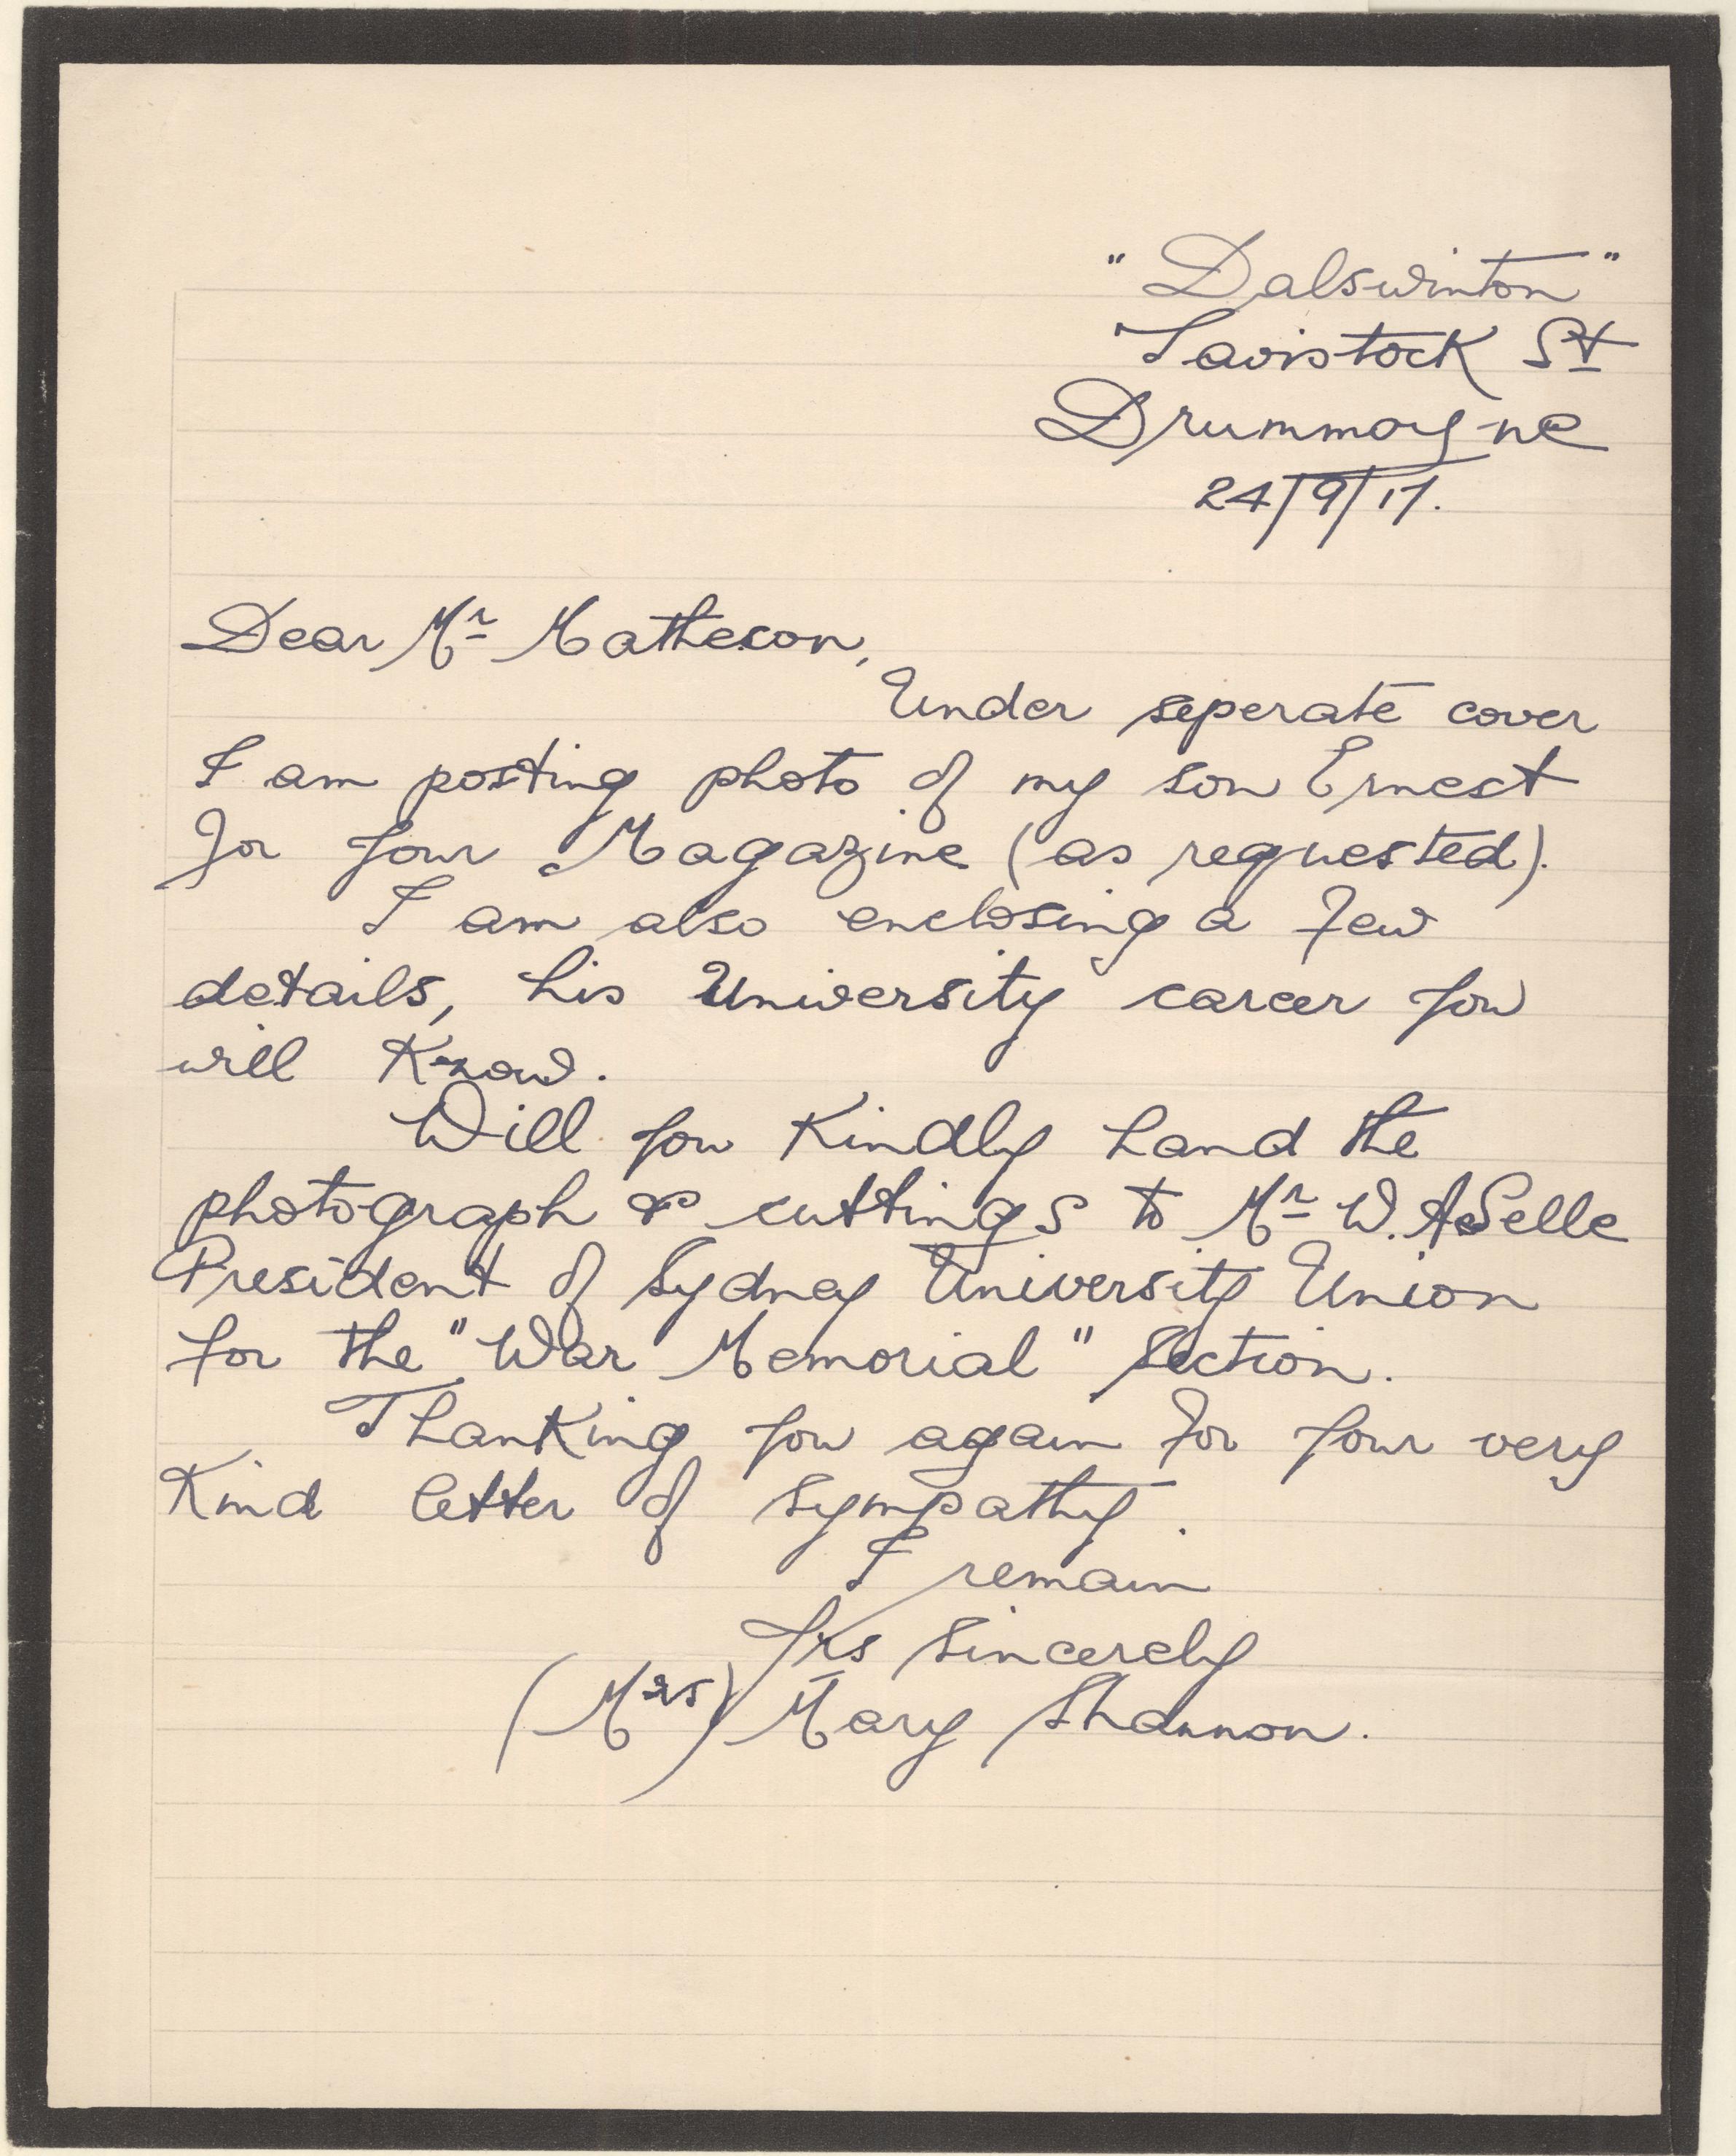 "Dalswinton"
Tavistock St
Drummoyne
24/9/17.
Dear Mr Matheson,
Under seperate cover
I am posting photo of my son Ernest
for your Magazine (as requested).
I am also enclosing a few
details, his University career you
will Know.
Will you Kindly hand the
photograph & cuttings to Mr W. A. Selle
President of Sydney University Union
for the "War Memorial" Section.
Thanking you again for your very
Kind letter of sympathy.
I remain
Yrs Sincerely
(Mrs) Mary Shannon.